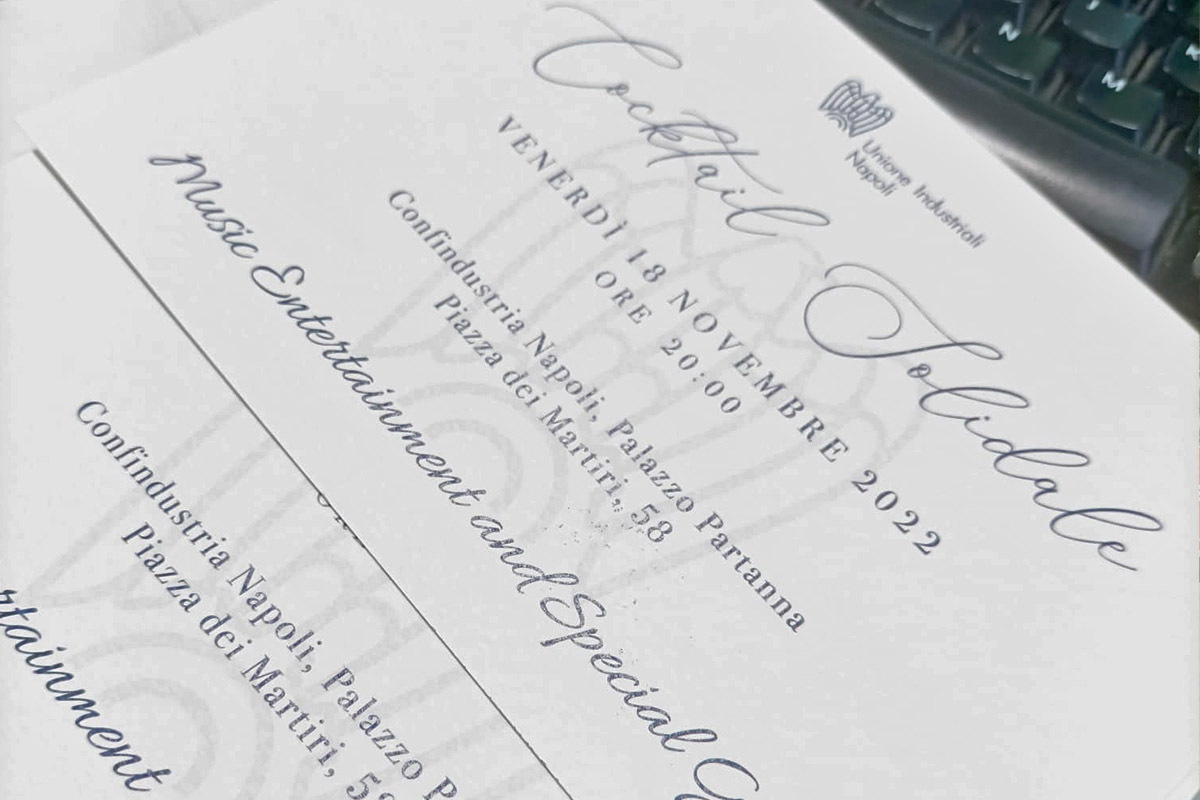 Unione Industriali
Napoli
Cocktail Solidale
VENERDÌ 18 NOVEMBRE 2022
ORE 20:00
Confindustria Napoli, Palazzo Partanna
Piazza dei Martiri, 58
Music Entertainment and Special
Confindustria Napoli, Palazzo P
Piazza dei Martiri, 58
rtainment
N
M